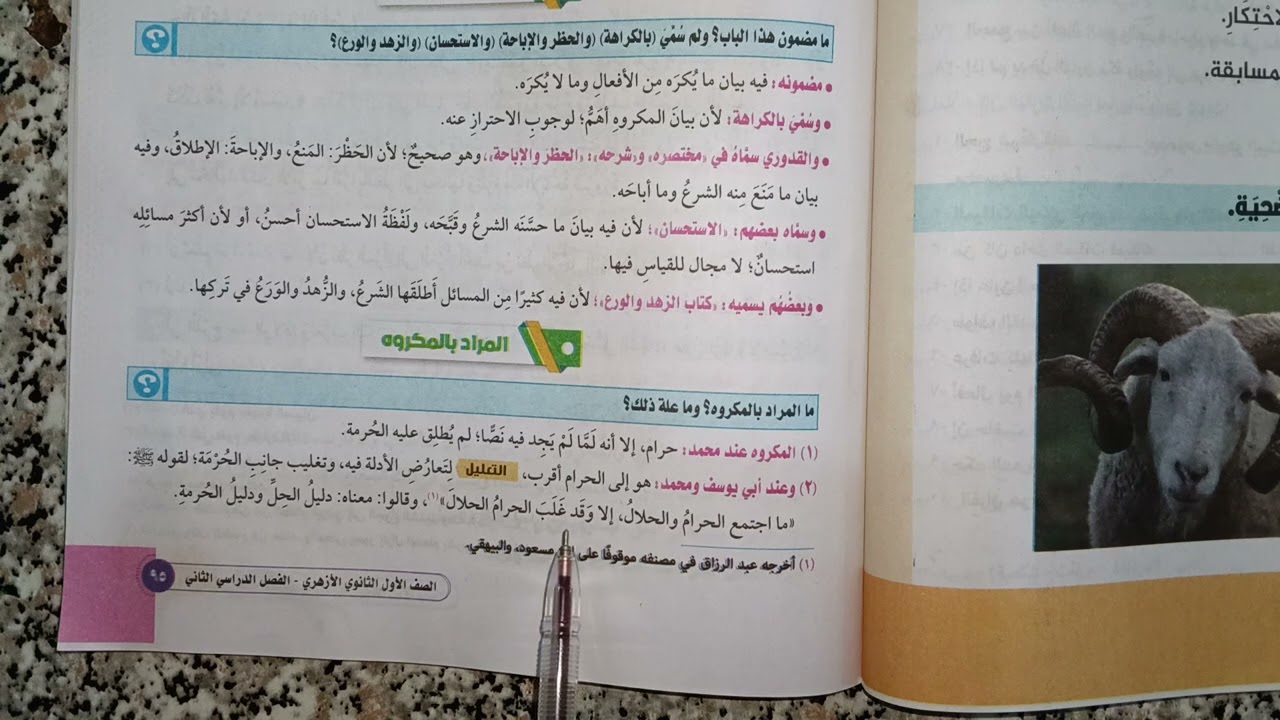 ما مضمون هذا الباب؟ ولم سُمِّيَ (بالكراهة) (والحظر والإباحة) (والاستحسان) (والزهد والورع)؟
• مضمونه: فيه بيان ما يُكرَه مِن الأفعالِ وما لا يُكرَه.
• وسُمِّيَ بالكراهة: لأن بيانَ المكروهِ أهَمُّ؛ لوجوبِ الاحترازِ عنه.
• والقدوري سمَّاهُ في «مختصره» و«شرحه»: «الحظر والإباحة»، وهو صحيحٌ؛ لأن الحَظْرَ: المَنعُ، والإباحةَ: الإطلاقُ، وفيه
بيان ما مَنَعَ مِنه الشرعُ وما أباحَه.
• وسمَّاه بعضُهم: «الاستحسان»؛ لأن فيه بيانَ ما حسَّنَه الشرعُ وقَبَّحَه، ولَفْظَةُ الاستحسان أحسنُ، أو لأن أكثرَ مسائلِه
استحسانٌ؛ لا مجال للقياسِ فيها.
• وبعضُهُم يسميه: «كتاب الزهد والورع»؛ لأن فيه كثيرًا مِن المسائل أَطلَقَها الشَرعُ، والزُّهدُ والوَرَعُ في تَركِها.
المراد بالمكروه
ما المراد بالمكروه؟ وما علة ذلك؟
(١) المكروه عند محمد: حرام، إلا أنه لَمَّا لَمْ يَجِد فيه نَصًّا؛ لم يُطلِق عليه الحُرمة.
(٢) وعند أبي يوسف ومحمد: هو إلى الحرام أقرب، التعليل لِتَعارُضِ الأدلة فيه، وتغليب جانِبِ الحُرْمَة؛ لقوله ﷺ:
«ما اجتمع الحرامُ والحلالُ، إلا وَقَد غَلَبَ الحرامُ الحلالَ»(١)، وقالوا: معناه: دليلُ الحِلِّ ودليلُ الحُرمةِ.
(١) أخرجه عبد الرزاق في مصنفه موقوفًا على مسعود، والبيهقي.
الصف الأول الثانوي الأزهري - الفصل الدراسي الثاني
٩٥
الاحْتِكَارِ.
مسابقة.